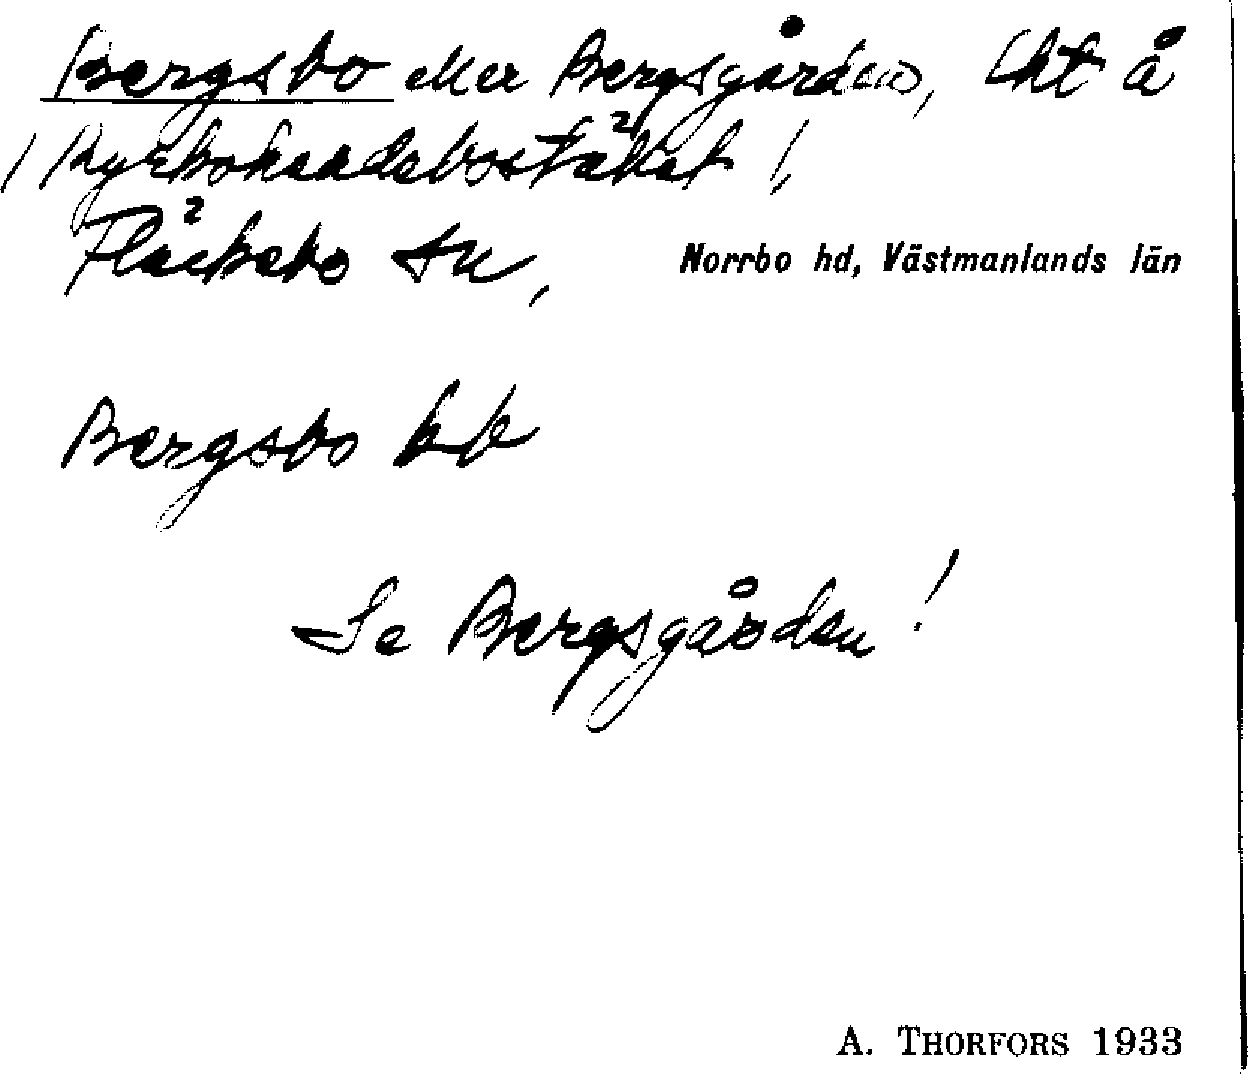 Bergsbo eller Bergsgården, lht å
/ Kyrkoherdebostället /,
Fläckebo sn, Norrbo hd, Västmanlands län
Bergsbo kb
Se Bergsgården!
A. THORFORS 1933